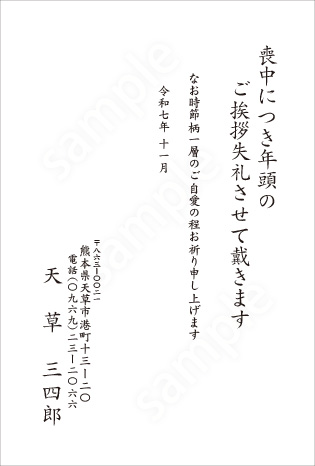 喪中につき年頭の
ご挨拶失礼させて戴きます
なお時節柄一層のご自愛の程お祈り申し上げます
令和七年 十一月
〒八六三ー〇〇二一
熊本県天草市港町十三ー二〇
電話(〇九六九)二三ー二〇六六
天草 三四郎
sample
sample
sample
sample